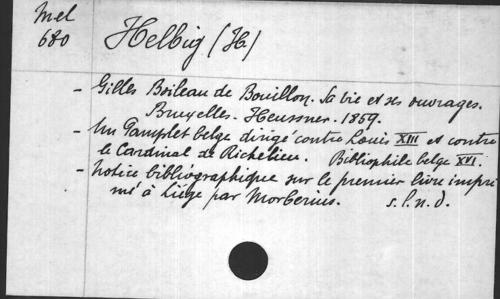 Mel
680
Helbig (H.)
- Gilles Boileau de Bouillon. Sa vie et ses ouvrages.
Bruxelles. Heussner. 1859.
- Un Pamflet belge dirigé contre Louis XIII et contre
le Cardinal de Richelieu. Bibliophile belge XVI.
- Notice bibliographique sur le premier livre impri
mé à Liége par Morberius. s. l. n. d.